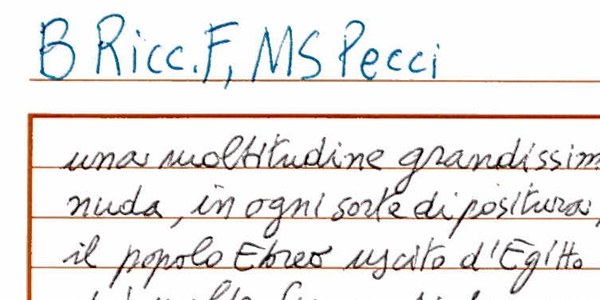 B Ricc. F, MS Pecci
una moltitudine grandissim
nuda, in ogni sorte di positura,
il popolo Ebreo uscito d'Egitto